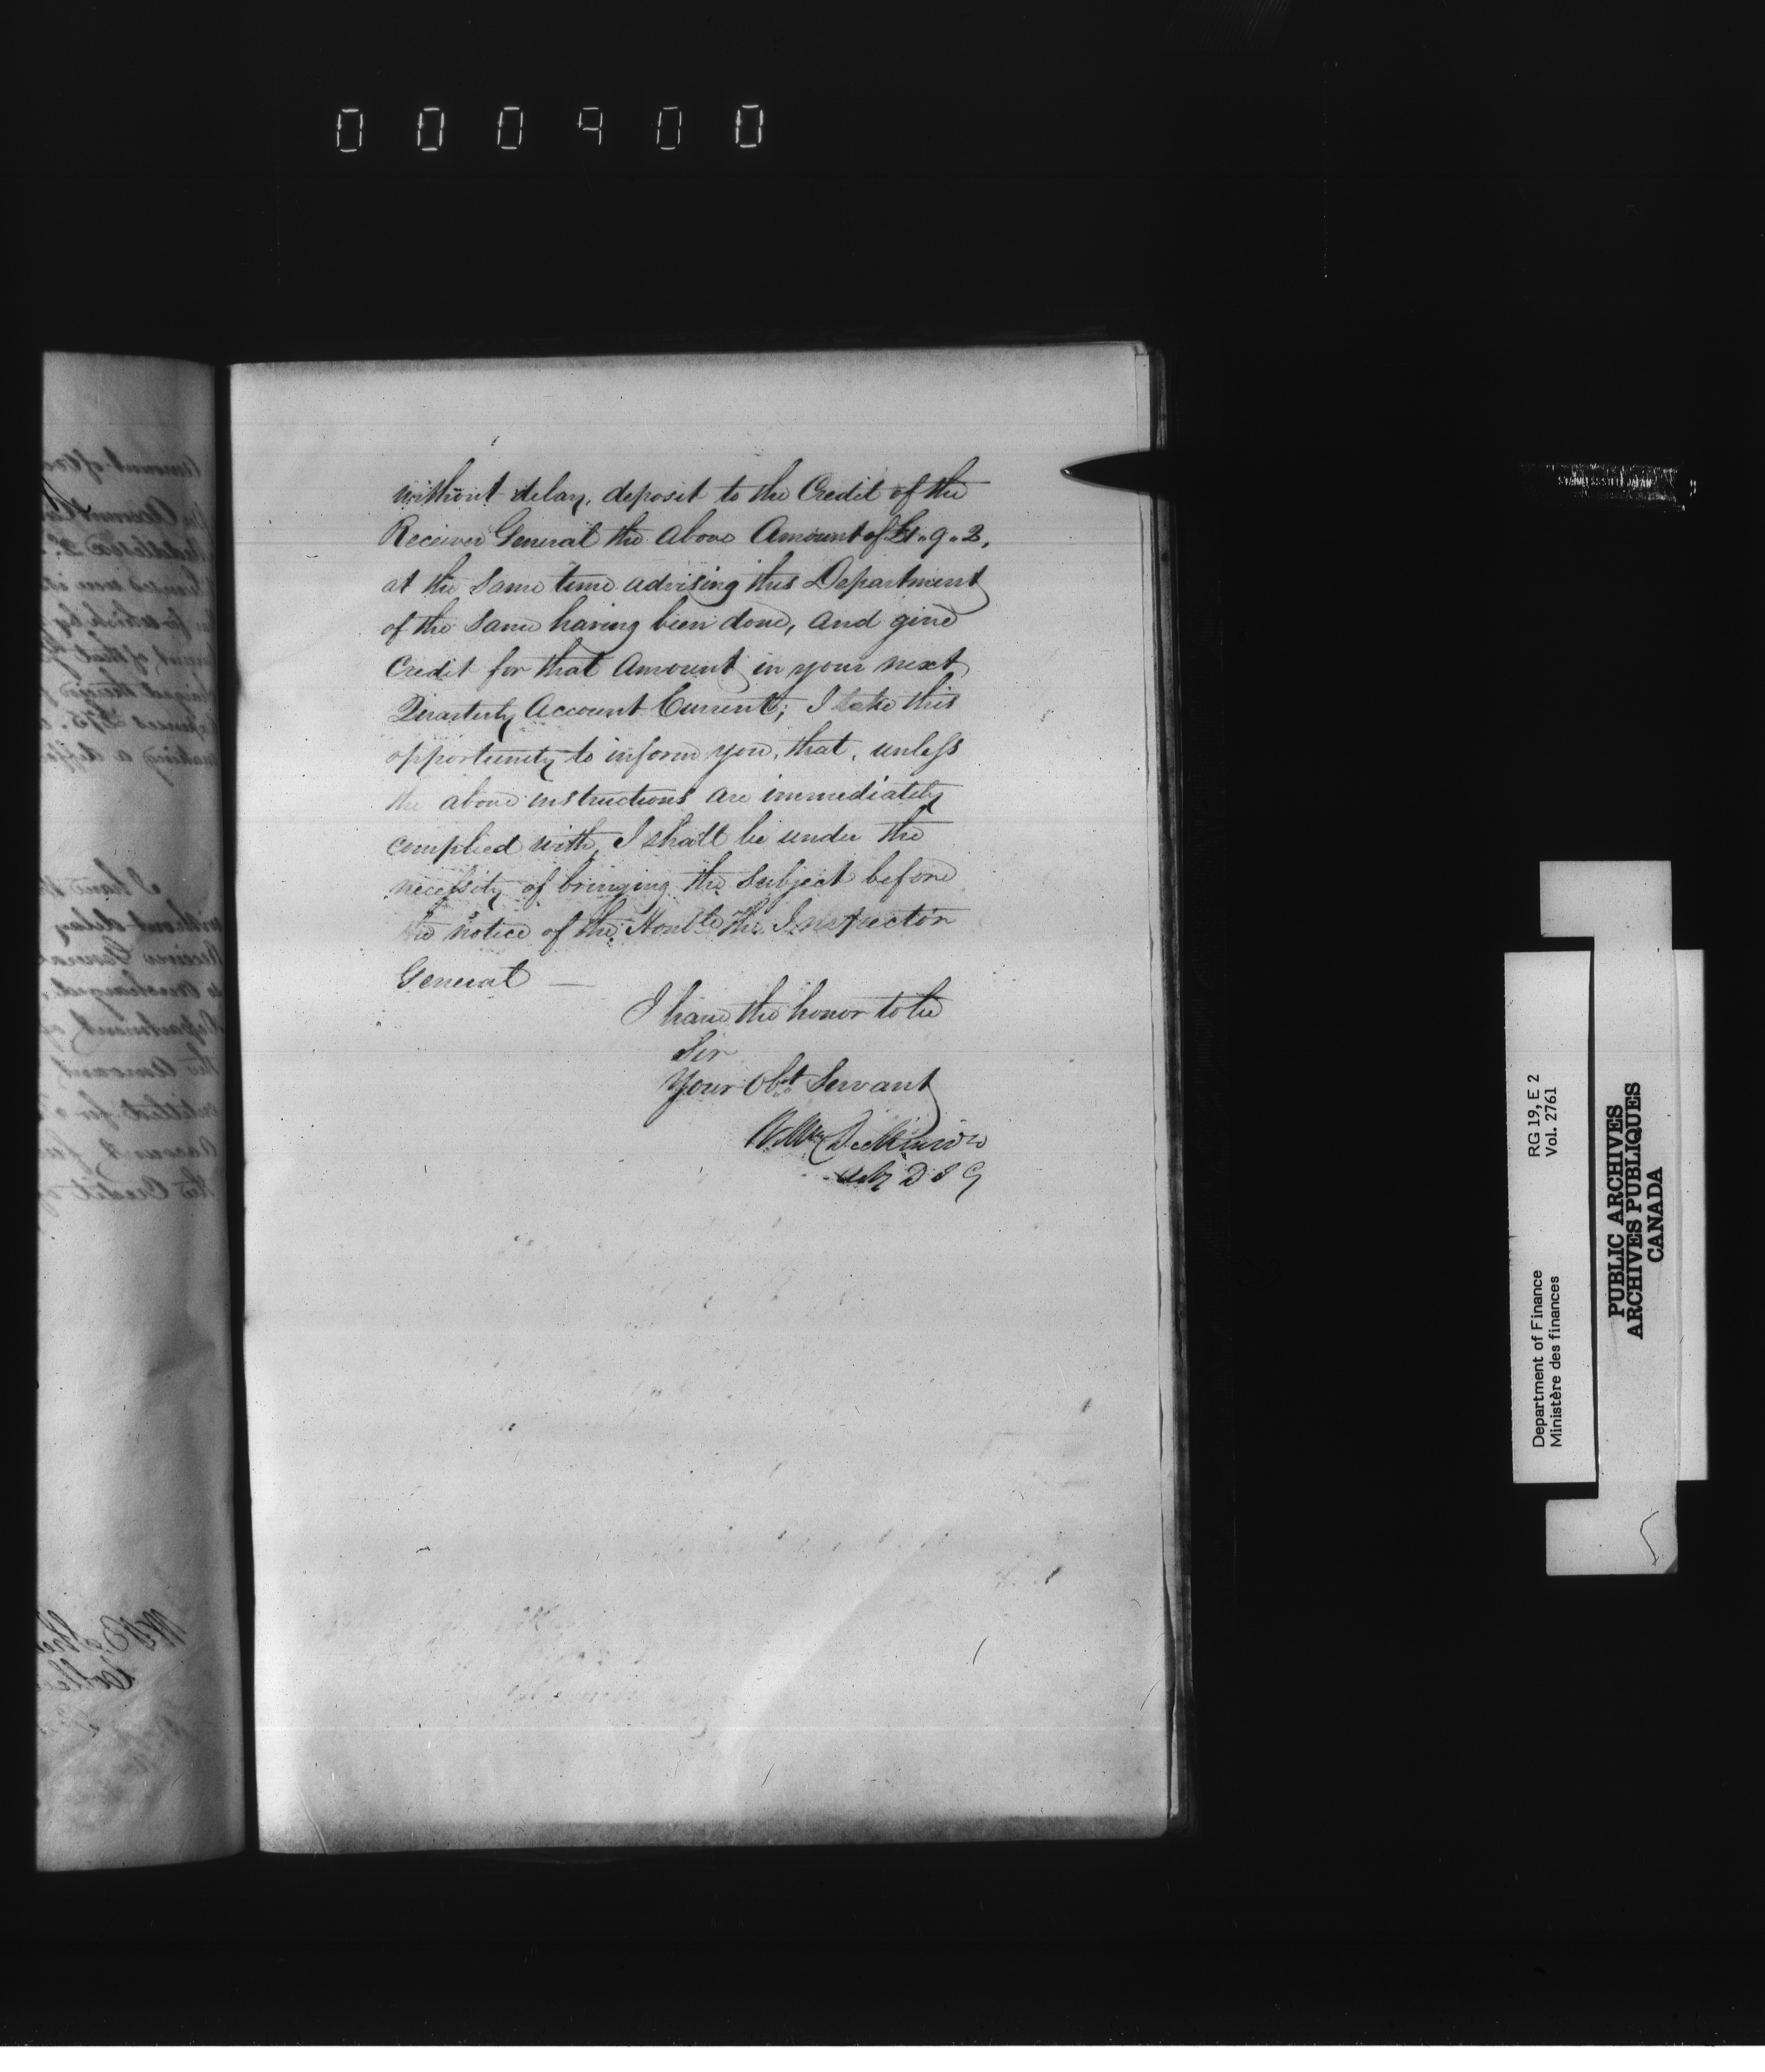 000400
without delay, deposit to the Credit of the
Receiver General the above Amount of £1.9.2,
at the same time advising this Department
of the same having been done, and give
Credit for that Amount in your next
Quarterly Account Current; I take this
opportunity to inform you, that, unless
the above instructions are immediately
complied with, I shall be under the
necessity of bringing the Subject before
the notice of the Honble the Inspector
General —
I have the honor to be
Sir
Your Obt Servant
Wm Dickinson
Actg D I G
Department of Finance RG 19, E 2
Ministère des finances Vol. 2761
PUBLIC ARCHIVES
ARCHIVES PUBLIQUES
CANADA